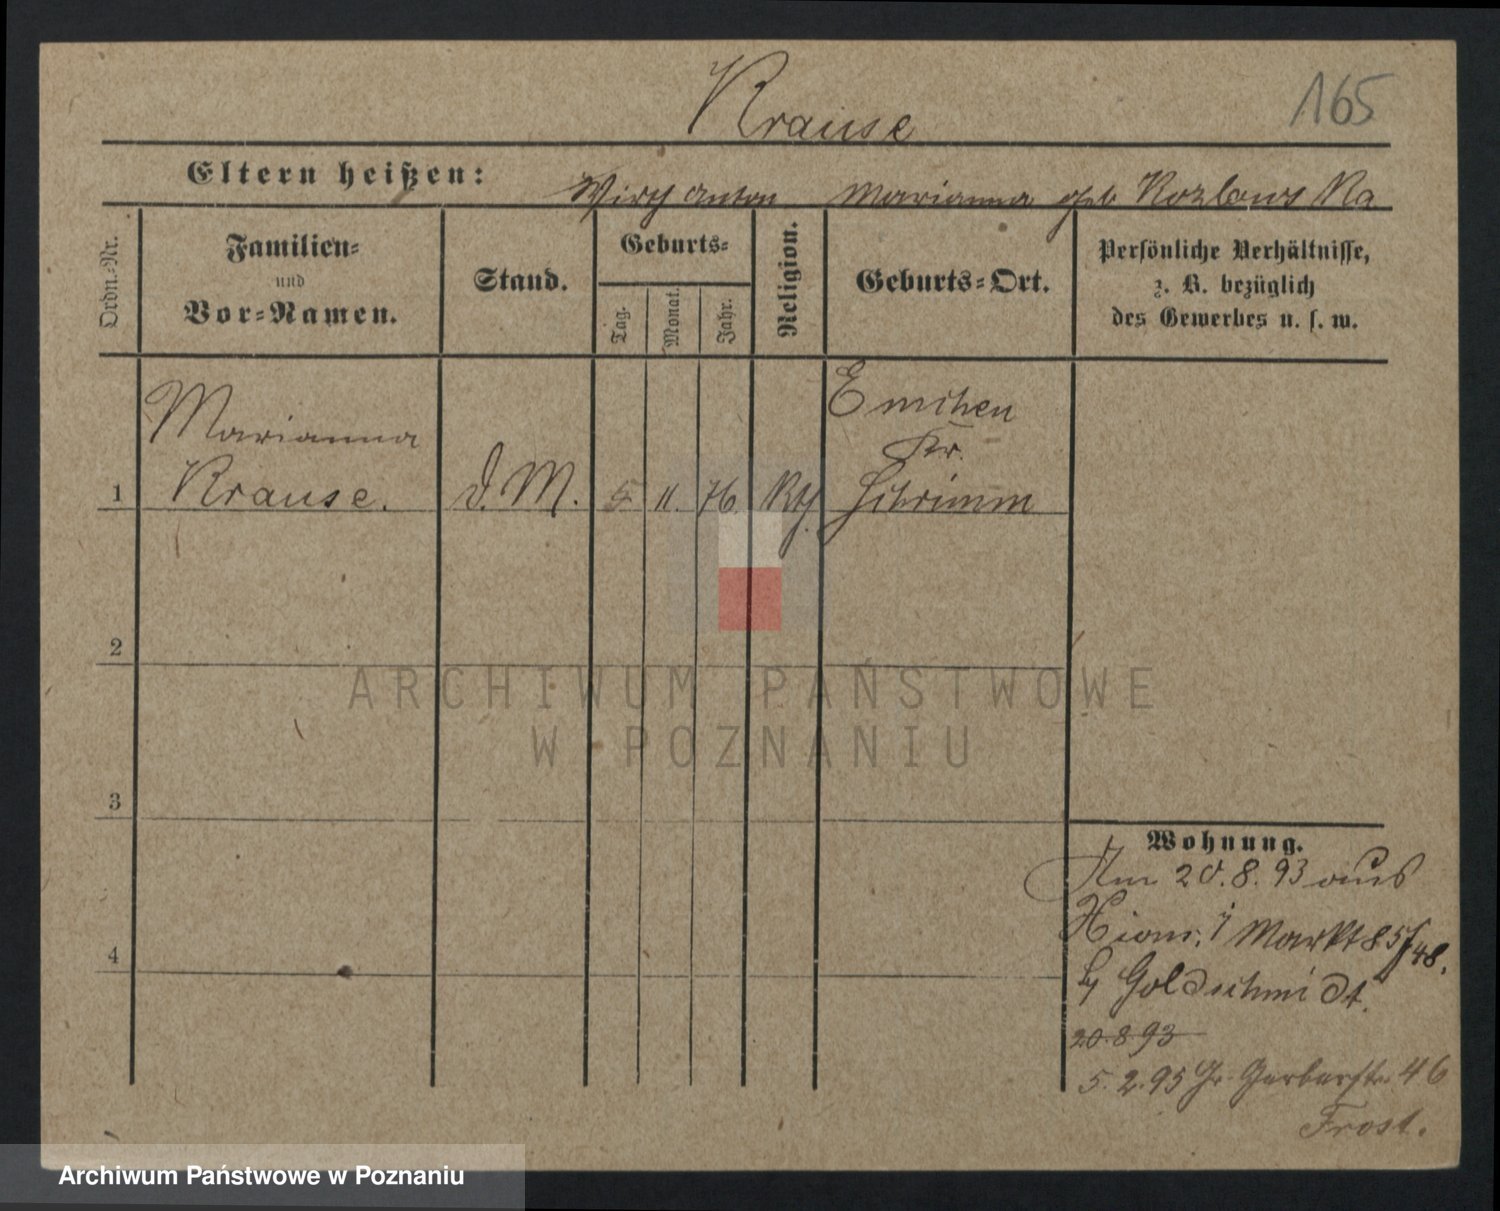 Krause
165
Eltern heißen:
Wirth Anton Marianna geb Kozlowska
Ordn.=Nr.
Familien=
und
Vor=Namen.
Stand.
Geburts=
Tag.
Monat.
Jahr.
Religion.
Geburts=Ort.
Persönliche Verhältnisse,
z. B. bezüglich
des Gewerbes u. s. w.
1
Marianna
Krause.
d. M.
5
11.
76
Kth.
Emchen
Kr.
Schrimm
2
3
4
Wohnung.
20.8.93 aus
Xions, Markt 85/48.
by Goldschmidt.
20.8.93
5.2.95 Gr. Gerberstr. 46
Frost.
ARCHIWUM PAŃSTWOWE
W POZNANIU
Archiwum Państwowe w Poznaniu